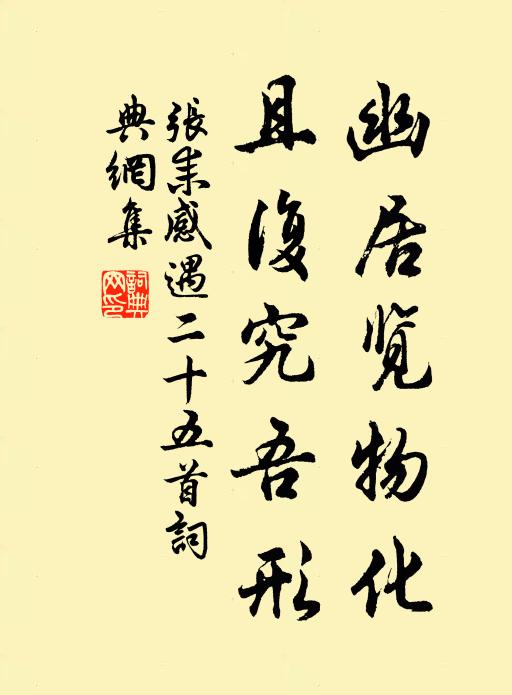 幽居览物化
且復究吾形
張耒感遇二十五首詞
典網集
詞典網印